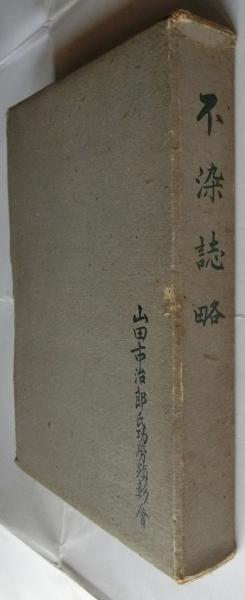 不染誌略
山田市治郎氏功労顕彰會